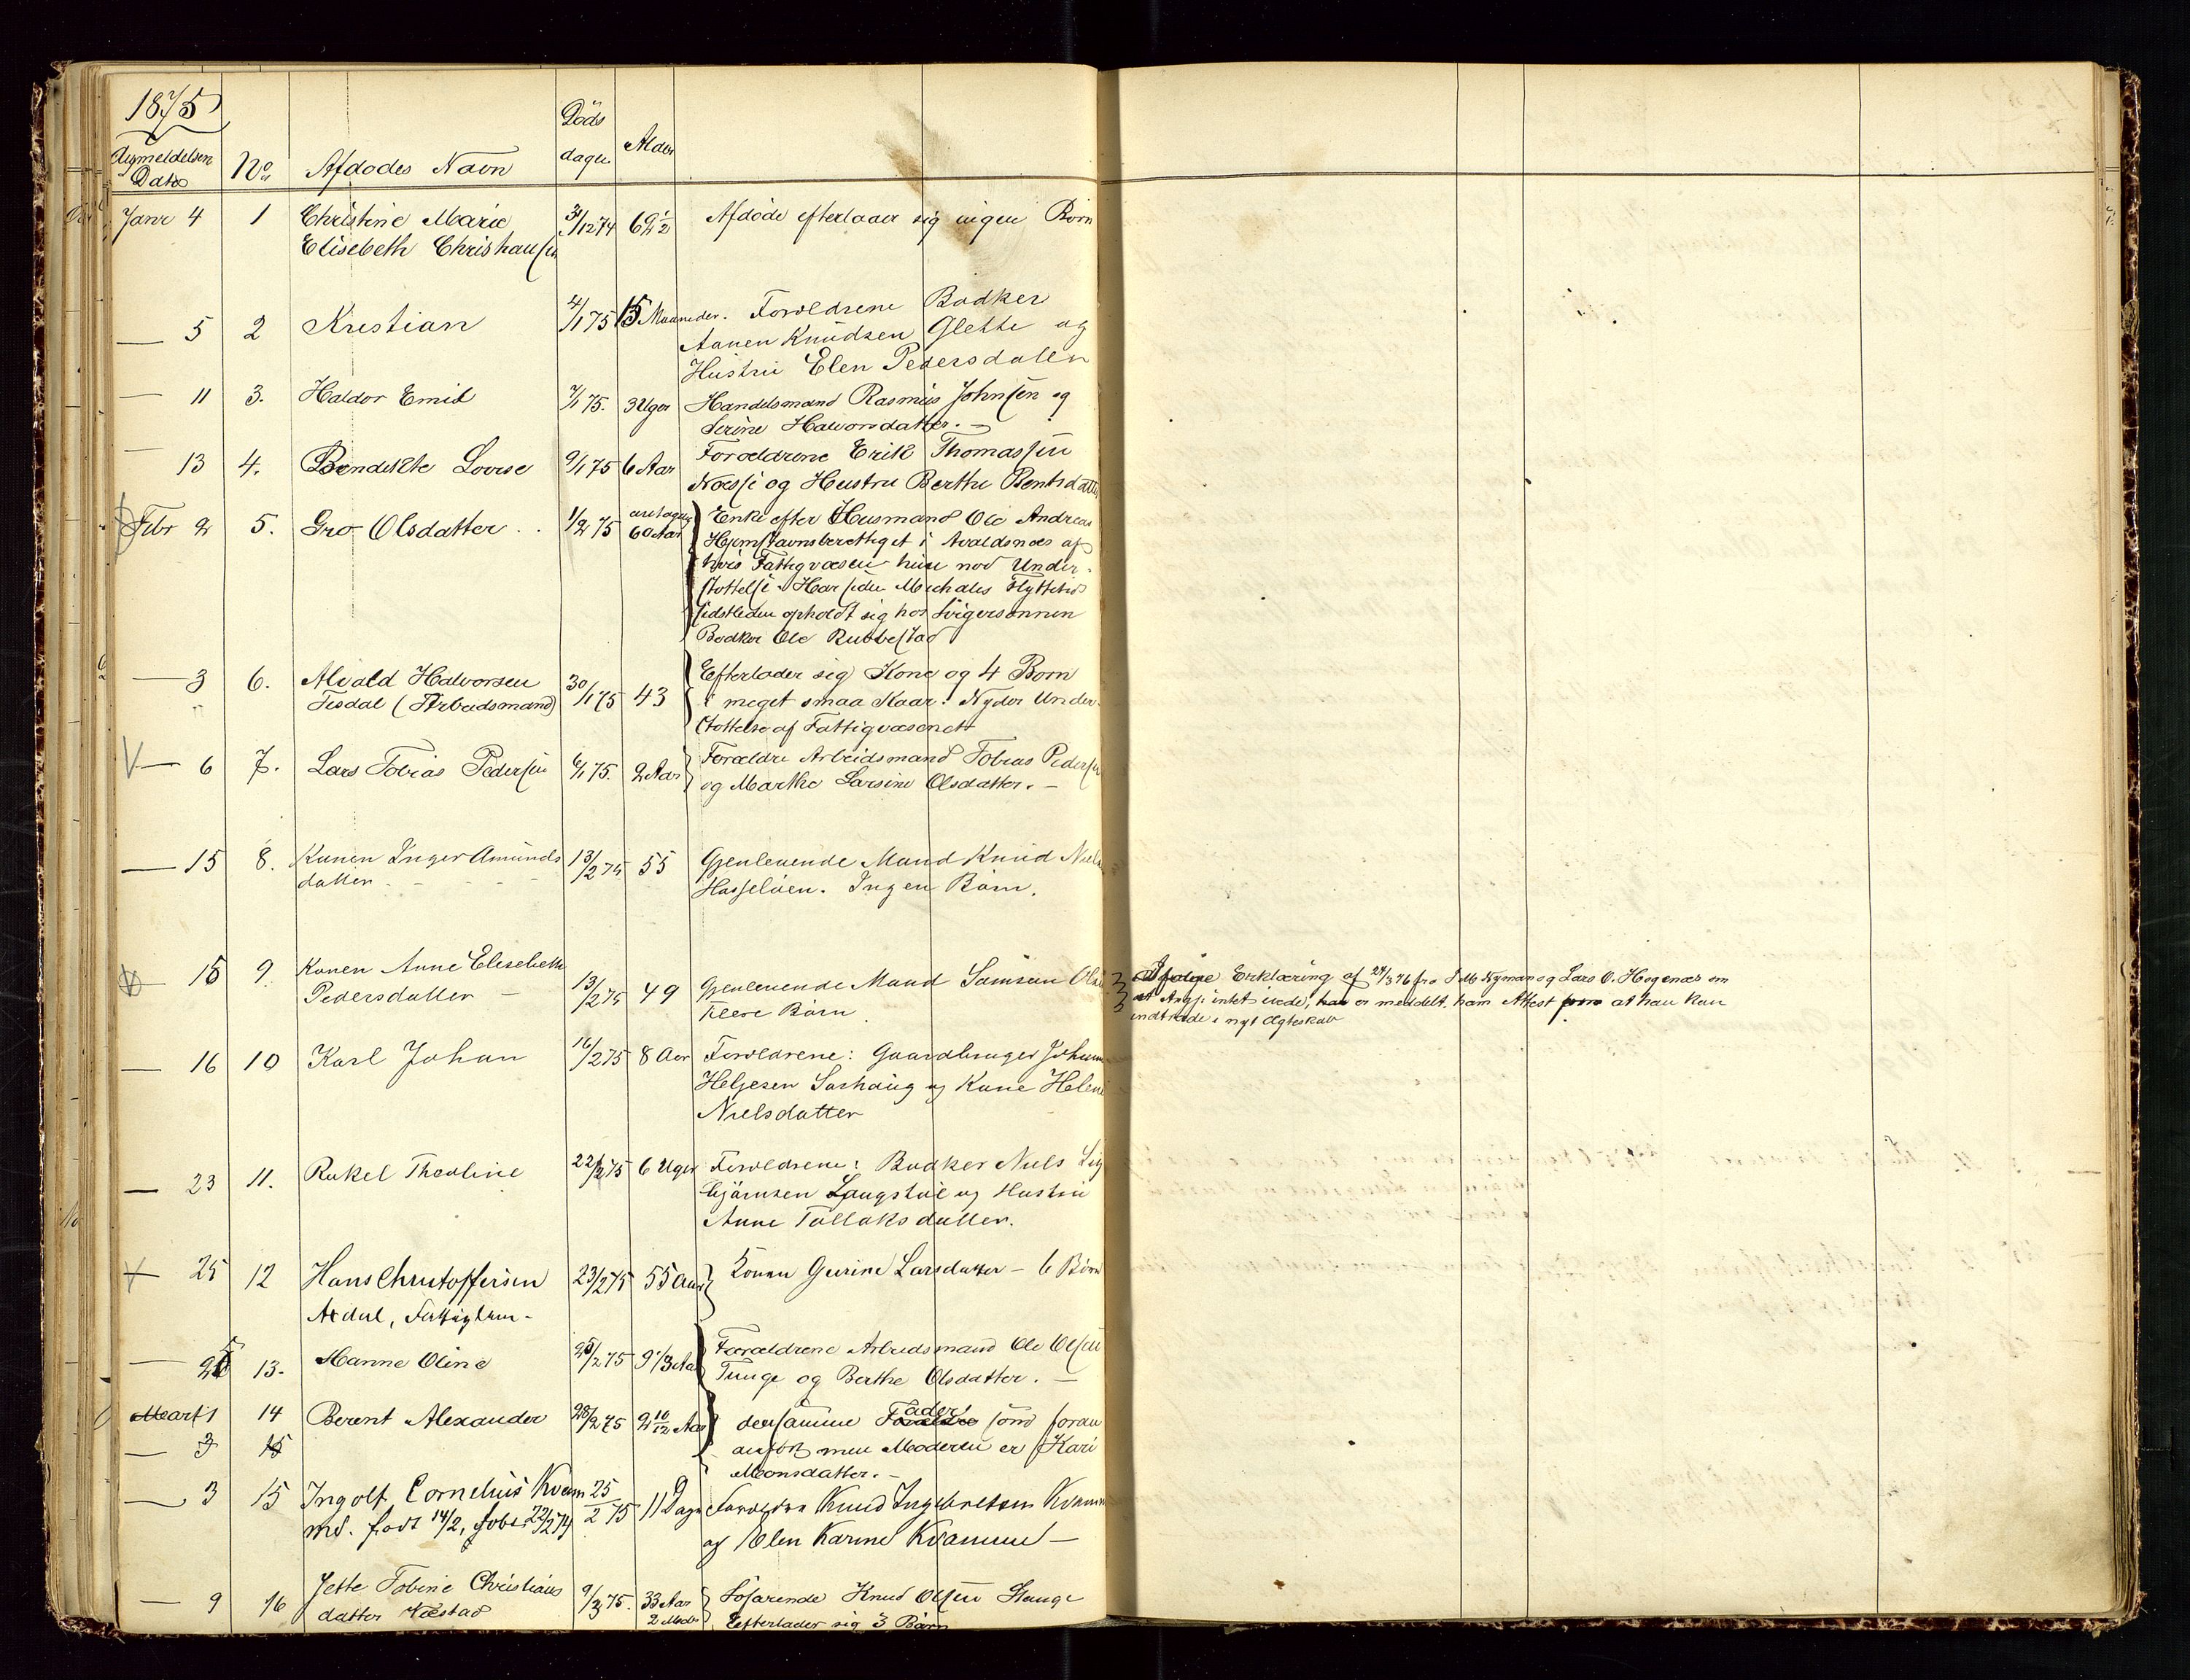 1875
Anmeldelsens
Dato
No.
Afdødes Navn
Døds
dagen
Alder
Janr 4 1 Christine Marie 31/12 74 69 1/2 Afdøde efterlader sig ingen Børn
Elisebeth Christiansen
— 5 2 Kristian 4/1 75 15 Maaneder. Forældrene Bødker
Aanen Knudsen Glette og
Hustru Elen Pedersdalen
— 11 3. Haldor Emil 7/1 75. 3 Uger Handelsmand Rasmus Johnsen og
Serine Halvorsdatter. —
— 13 4. Bendikte Lovise 9/1 75 6 Aar Forældrene Erik Thomassen
Næsse og Hustru Berthe Bentsdatter
Febr 2 5. Gro Olsdatter . . 1/2 75 antagelig 60 Aar Enke efter Husmand Ole Andreas
Hjemstavnsberettiget i Avaldsnæs af
hvis Fattigvæsen hun nød Under-
støttelse. Har siden Michales Flyttetid
sidstleden opholdt sig hos Svigersønnen
Bødker Ole Rubbestad
— 3 6. Alvald Halvorsen 30/1 75 43 Efterlader sig Kone og 4 Børn
Tisdal (Arbeidsmand) i meget smaa Kaar. Nyder Under-
støttelse af Fattigvæsenet
— 6 7. Lars Tobias Pedersen 6/1 75. 2 Aar Forældre Arbeidsmand Tobias Pedersen
og Marthe Larsine Olsdatter. —
— 15 8. Konen Inger Amunds 13/2 75 55 Gjenlevende Mand Knud Niels
datter - - - - Hasseløen. Ingen Børn.
— 15 9. Konen Anne Elisebeth 13/2 75 49 Gjenlevende Mand Samson Olsen
Pedersdatter — flere Børn.
Ifølge Erklæring af 24/3 76 fra S M Nyman og Lars O. Hagenæs om
at Angj. intet eiede, har er meddelt ham Attest for at han kan
indtræde i nyt Ægteskab
— 16 10 Karl Johan 16/2 75 8 Aar Forældrene: Gaardbruger Johan
Helgesen Sørhaug og Kone Helene
Nielsdatter
— 23 11. Rakel Theoline 22/2 75 6 Uger Forældrene: Bødker Niels Sig
bjørnsen Langstøl og Hustru
Anne Tollaksdatter.
— 25 12 Hans Christoffersen 23/2 75 55 Aar Konen Gurine Larsdatter — 6 Børn
Årdal, Fattiglem -
— 25 13. Hanne Oline 25/2 75 9 1/3 Aar Forældrene Arbeidsmand Ole Olsen
Tunge og Berthe Olsdatter. —
Marts 1 14 Berent Alexander 28/2 75 2 10/12 Aar densamme Fader som foran
— 3 15 anført men Moderen er Kari
Monsdatter. —
— 3 15 Ingolf Cornelius Kvam 25/2 75 11 Dage Forældre Knud Ingebretsen Kvamme
md. født 14/2, døbt 22/2 74 og Elen Karine Kvamme —
— 9 16 Jette Tobine Christians 9/3 75. 33 Aar Søfarende Knud Olsen Stange
datter Næstad 2 Mdr Efterlader sig 3 Børn